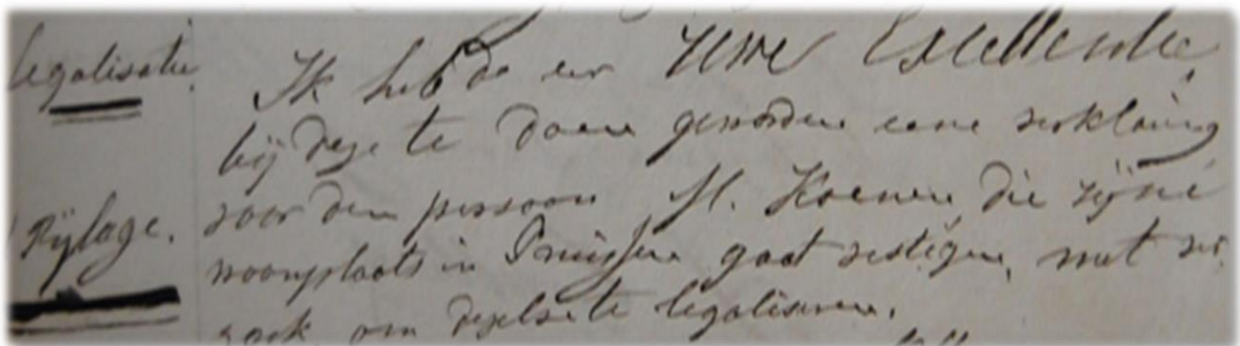 legalisatie
Ik heb de eer Uwe Excellentie
bij deze te doen geworden eene verklaring
voor den persoon H. Koenen die zijne
Bijlage.
woonplaats in Pruissen gaat vestigen, met ver
zoek om dezelve te legaliseren.